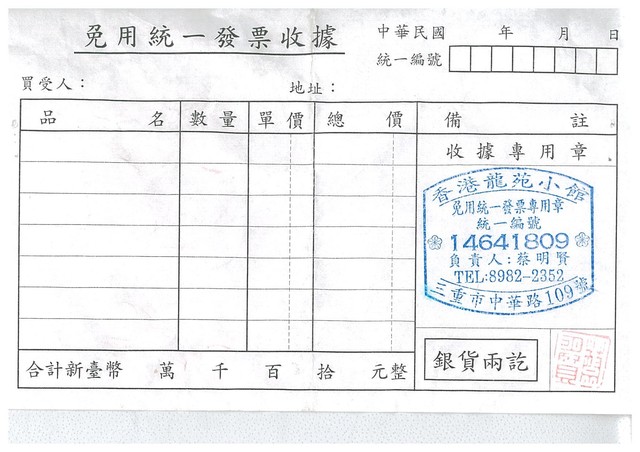 免用統一發票收據
中華民國 年 月 日
統一編號
買受人： 地址：
品 名 數量 單價 總 價 備 註
收據專用章
香港龍苑小館
免用統一發票專用章
統一編號
14641809
負責人：蔡明賢
TEL:8982-2352
三重市中華路109號
銀貨兩訖
合計新臺幣 萬 千 百 拾 元整